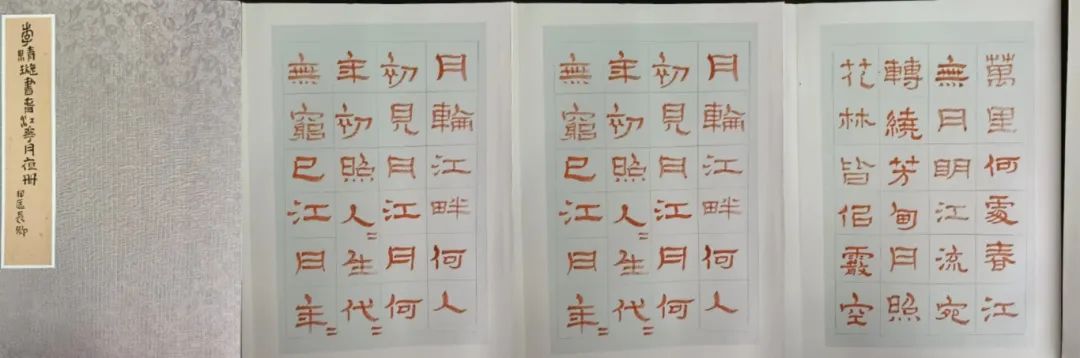 李璇書春江月夜冊
萬里何處春江
無月明江流宛
轉繞芳甸月照
花林皆佀霰空
月輪江畔何人
初見月江月何
年初照人〻生代〻
無窮已江月年〻
月輪江畔何人
初見月江月何
年初照人〻生代〻
無窮已江月年〻